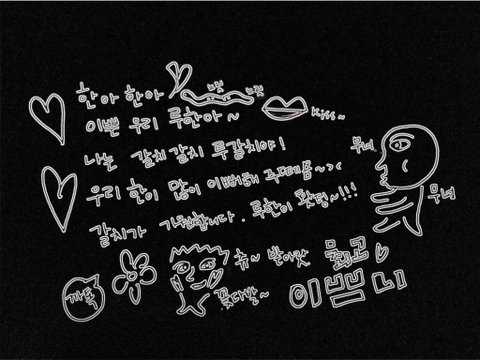 한아 한아
뻣 뻣
이쁜 우리 루한아~
Kiss~
나는 갈치 갈치 루갈치야!
무녀
우리 한이 많이 이뻐해 주떼욤~><
무녀
갈치가 기원합니다. 루한이 홧팅~!!!
츄~ 받아랏
까톡
꽃다발~
이쁘니